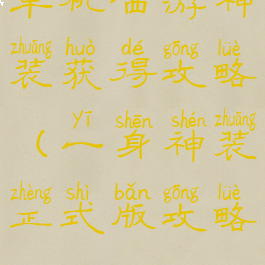 游 神
zhuāng huò dé gōng lüè
装 获 得 攻 略
yī shēn shén zhuāng
( 一 身 神 装
zhèng shì bǎn gōng lüè
正 式 版 攻 略